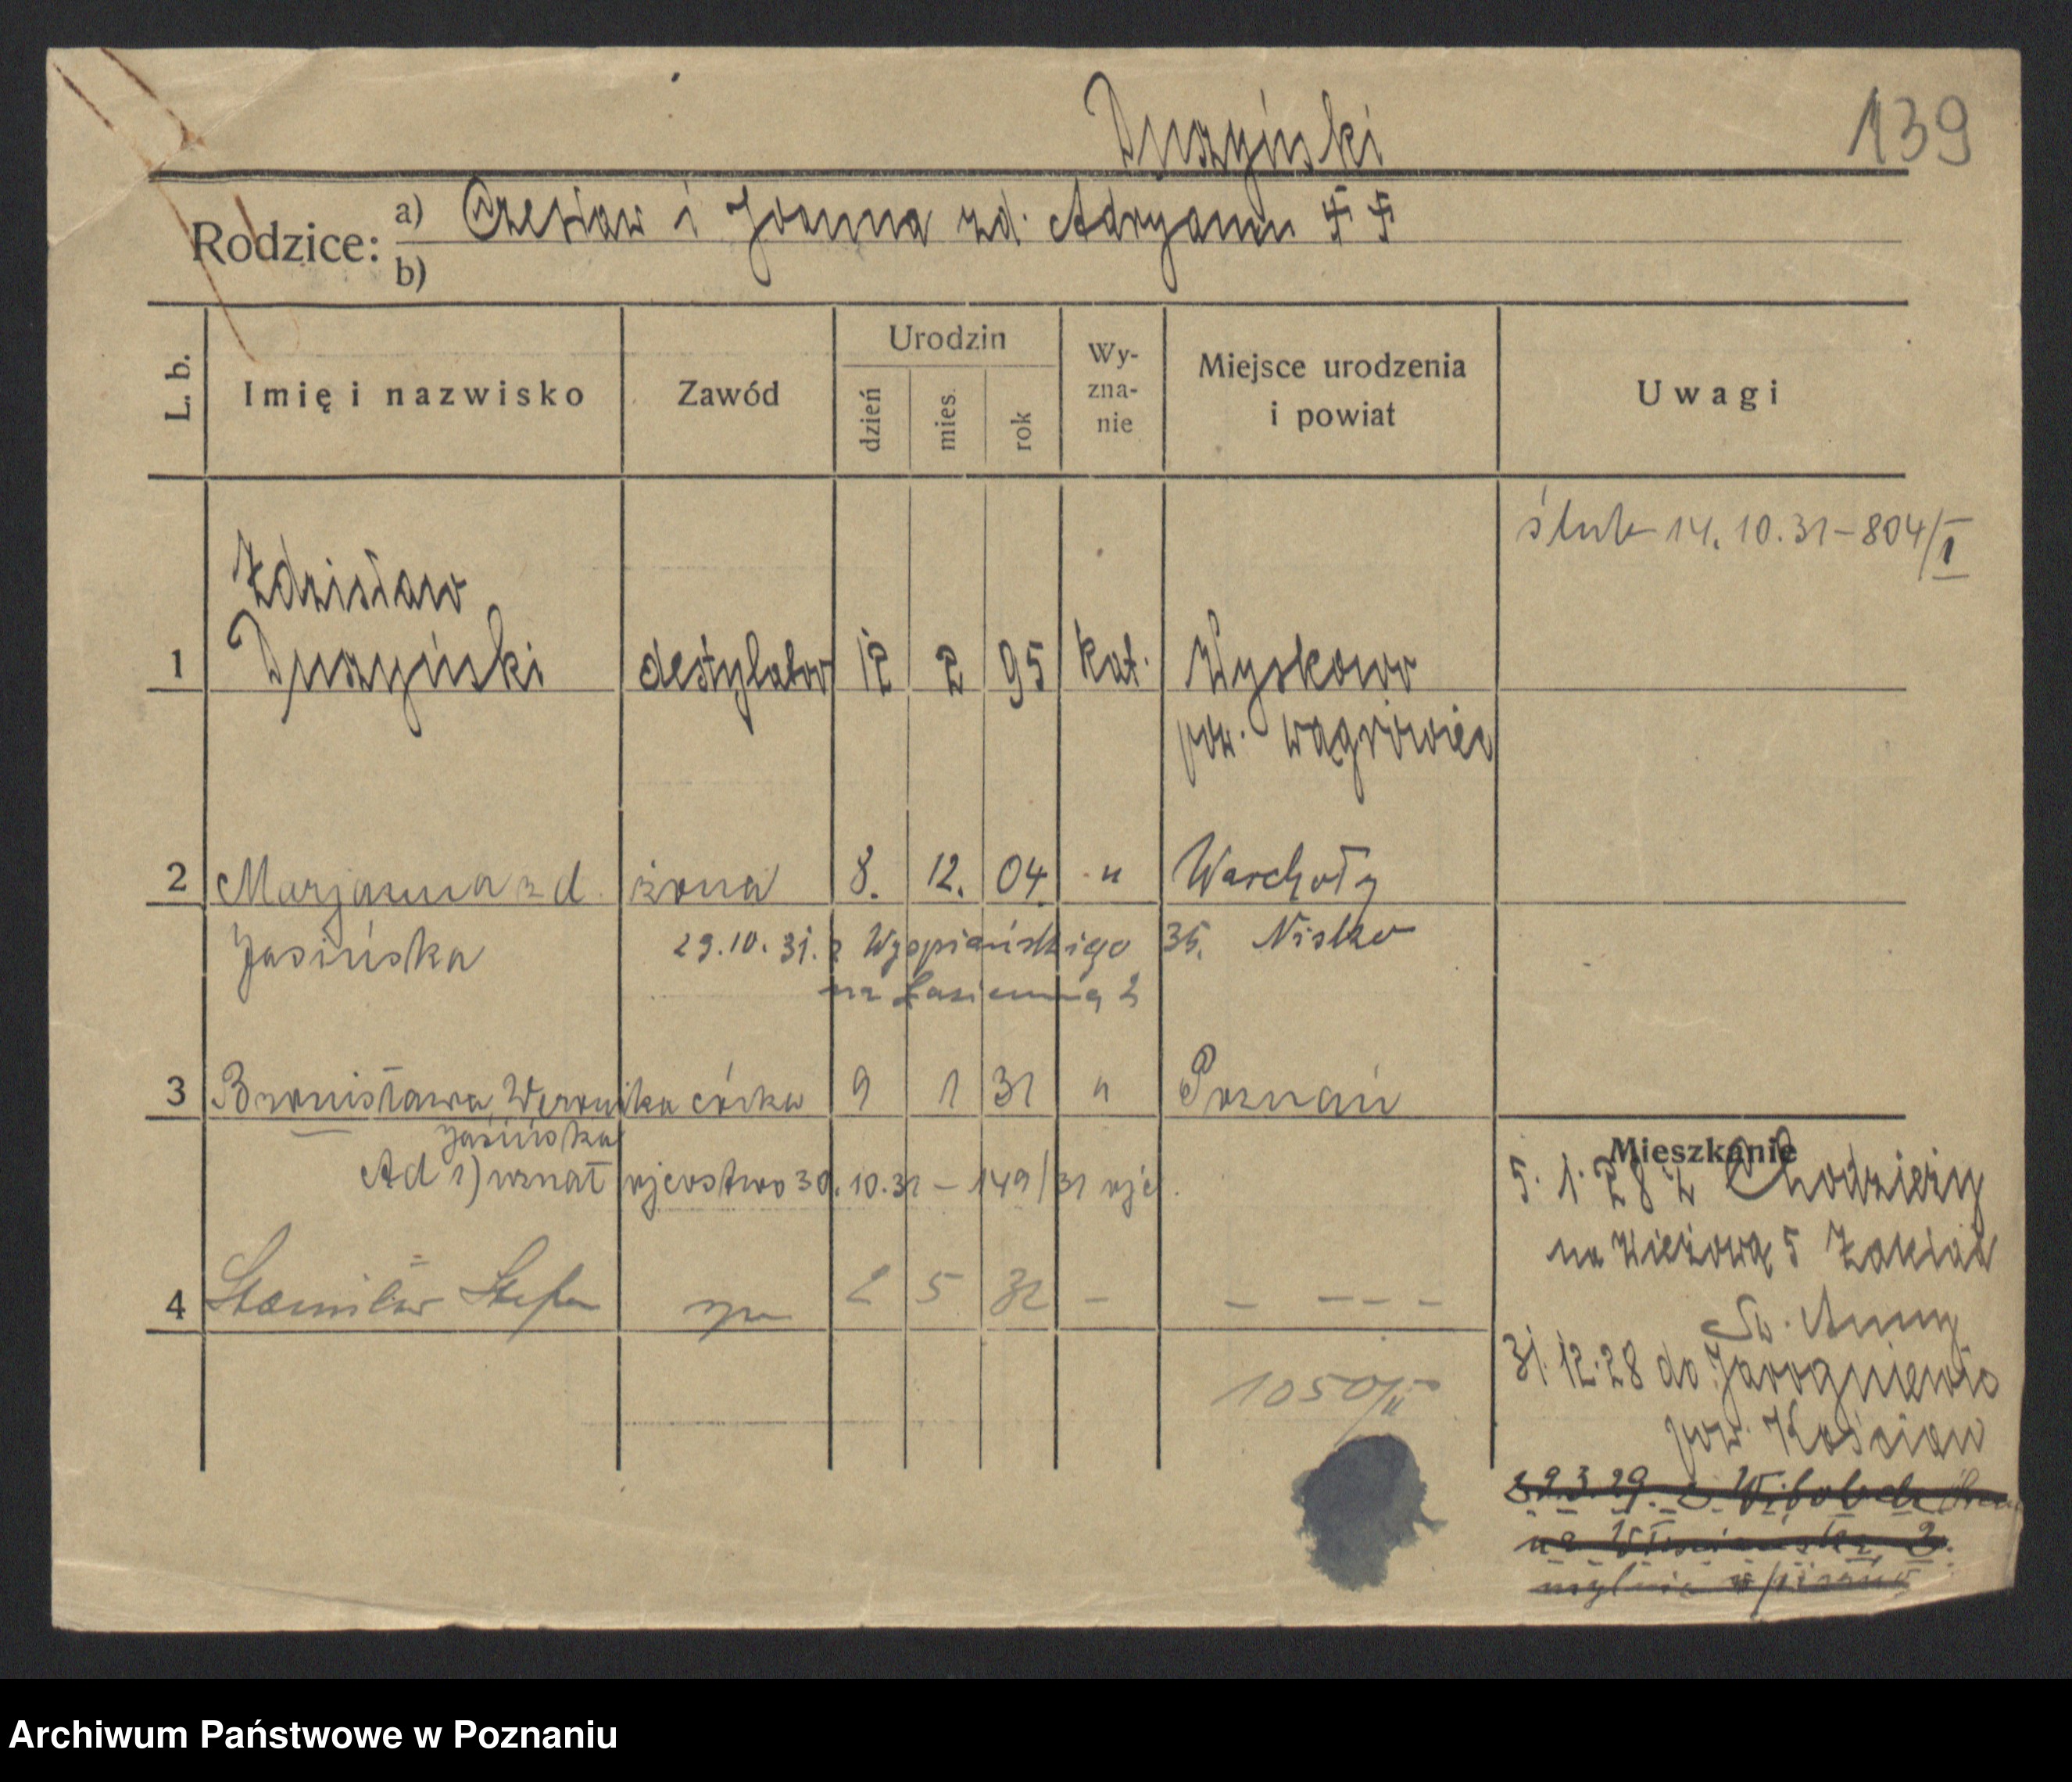 Duszyński
139
Rodzice: a) Czesław i Joanna zd. Adryann ‡ ‡
b)
L. b.
Imię i nazwisko
Zawód
Urodzin
dzień
mies.
rok
Wy-
zna-
nie
Miejsce urodzenia
i powiat
Uwagi
ślub 14.10.31 – 804/I
Zdzisław
1 Duszyński destylator 12 2 95 kat. Wyskowo
pow. wągrówiec
2 Marjanna z d. żona 8. 12. 04. " Warchoły
Jasińska Nisko
29.10.31. z Wyspiańskiego 35.
na Łazienną 2
3 Bronisława Weronika córka 9 1 31 " Poznań
Jasińska
Ad 1) uznał ojcostwo 30.10.31 – 149/31 ojc.
4 Stanisław Stefan syn 2 5 32 – – – – –
1050/II
Mieszkanie
5.1.28 z Chodzieży
na Wieżową 5 Zakład
Św. Anny
31.12.28 do Jarogniewic
pow. Kościan
29.3.29. z
na 2.
mylnie wpisano
Archiwum Państwowe w Poznaniu